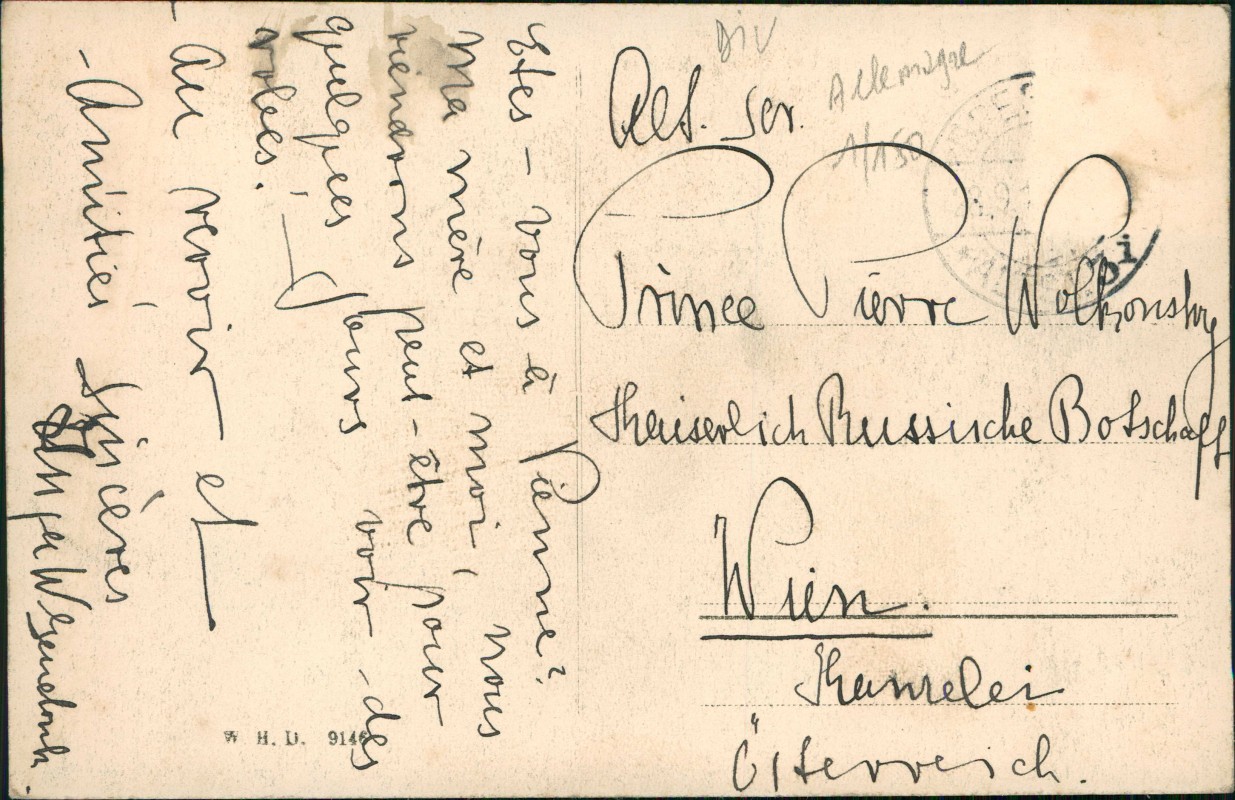 Etes-vous à Vienne?
Ma mère et moi, nous
viendrons peut-être pour
quelques jours voir des
robes.
Au revoir et
- Amitiés sincères
W. H. D. 9146
DIV
Allemagne
1/150
Prince Pierre Wolkonsky
Kaiserlich Russische Botschaft
Wien.
Kanzelei
Österreich.